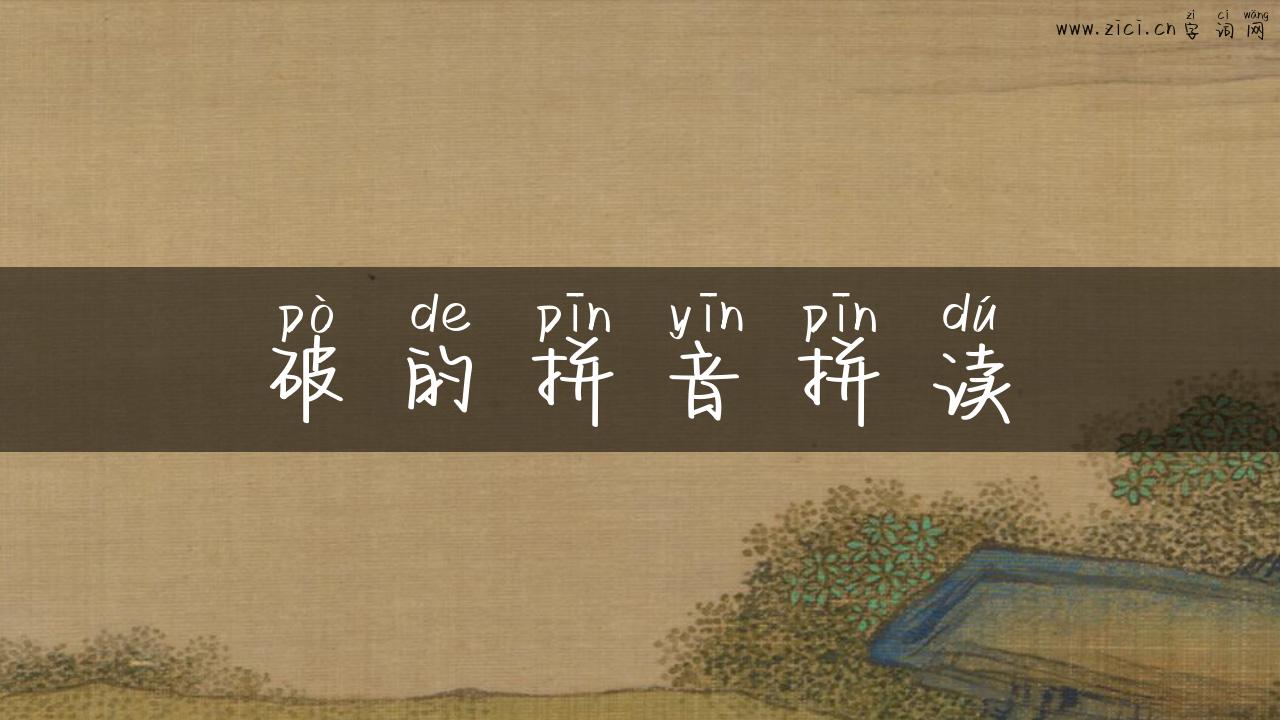 zì cí wǎng
www.zici.cn字词网
pò de pīn yīn pīn dú
破的拼音拼读